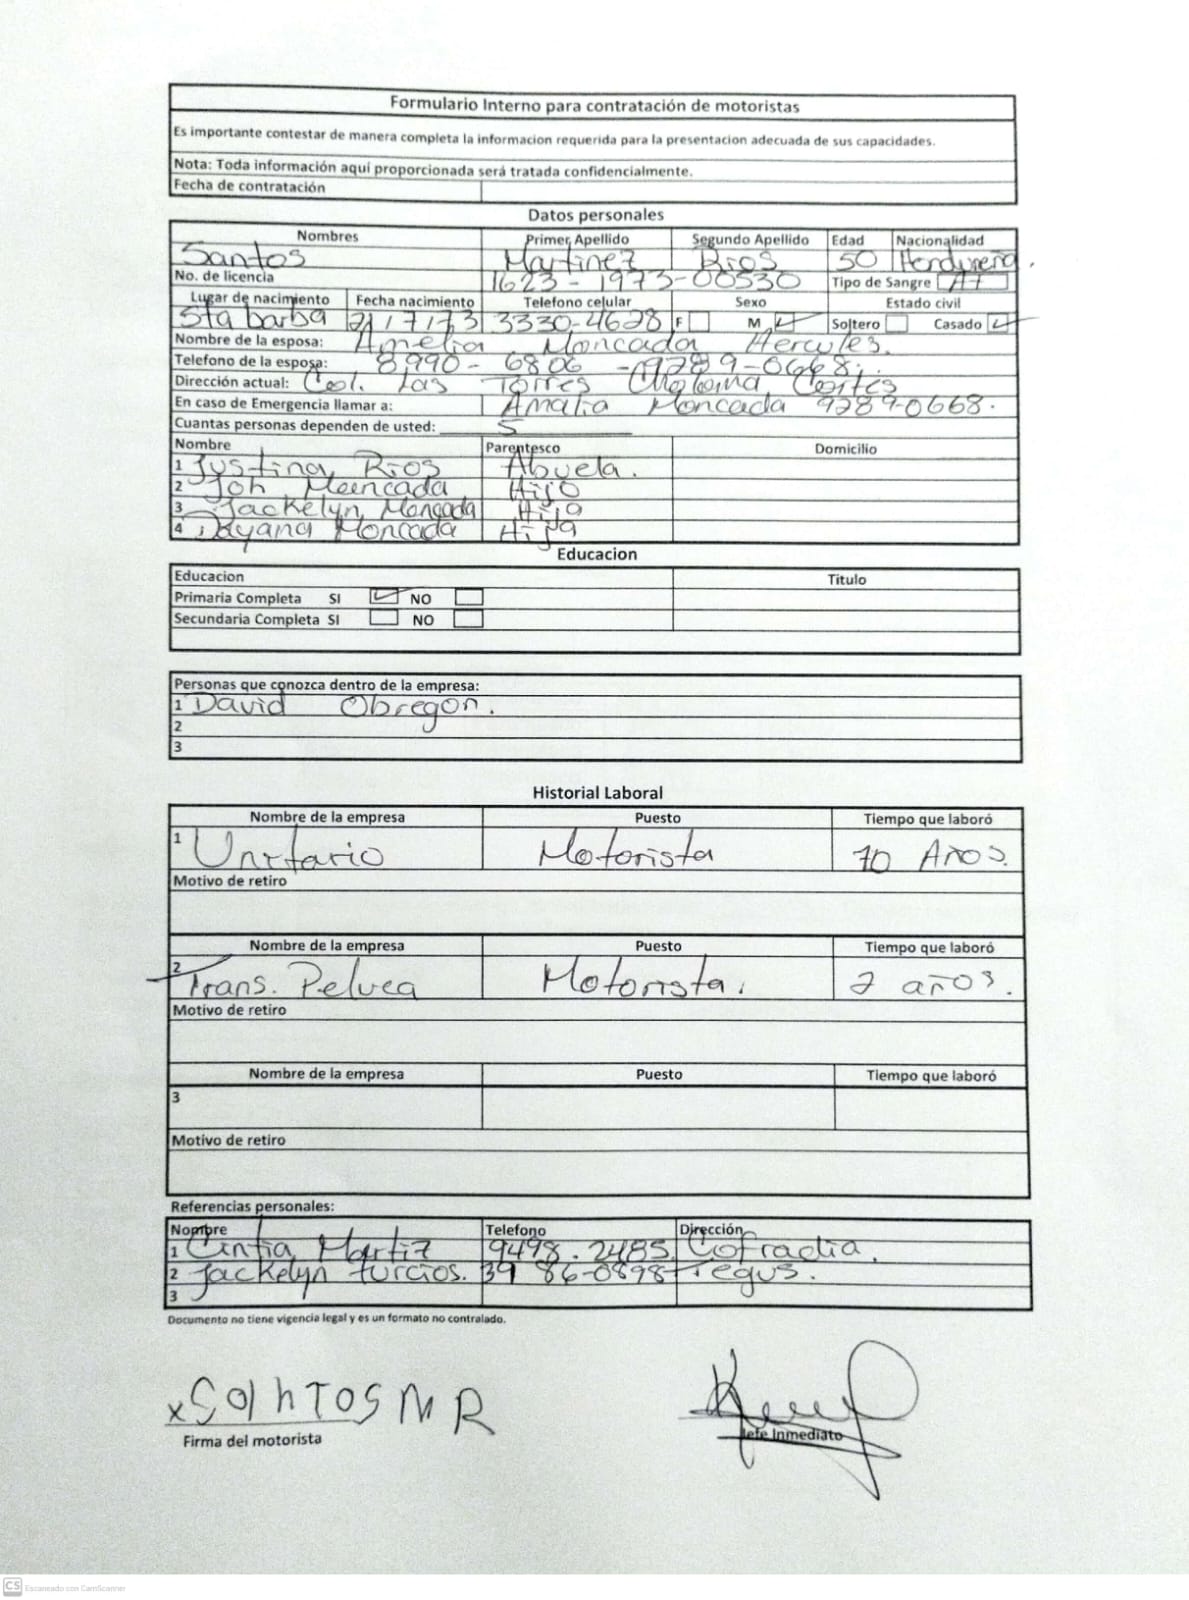 Formulario Interno para contratación de motoristas
Es importante contestar de manera completa la informacion requerida para la presentacion adecuada de sus capacidades.
Nota: Toda información aquí proporcionada será tratada confidencialmente.
Fecha de contratación
Datos personales
Nombres Primer Apellido Segundo Apellido Edad Nacionalidad
Santos Martinez Rios 50 Hondureña.
No. de licencia 1623-1973-00530 Tipo de Sangre
Lugar de nacimiento Fecha nacimiento Telefono celular Sexo Estado civil
Sta barba 3330-4628 F M Soltero Casado
Nombre de la esposa: Amelia Moncada Hercules.
Telefono de la esposa: 8,990-6806 -9289-0668.
Dirección actual: Col. Las Torres Choloma, Cortés
En caso de Emergencia llamar a: Amalia Moncada 9289-0668.
Cuantas personas dependen de usted: 5
Nombre Parentesco Domicilio
1 Justina Rios Abuela.
2 Joh Moncada Hijo
3 Jackelyn Moncada Hija
4 Dayana Moncada Hija
Educacion
Educacion Titulo
Primaria Completa SI NO
Secundaria Completa SI NO
Personas que conozca dentro de la empresa:
1 David Obregon.
2
3
Historial Laboral
Nombre de la empresa Puesto Tiempo que laboró
1 Unitario Motorista 10 Años.
Motivo de retiro
Nombre de la empresa Puesto Tiempo que laboró
2 Trans. Motorista. 2 años.
Motivo de retiro
Nombre de la empresa Puesto Tiempo que laboró
3
Motivo de retiro
Referencias personales:
Nombre Telefono Dirección
1 Cintia 9498.2485 Cofradia.
2 Jackelyn turcios. 39 86-0898 Tegus.
3
Documento no tiene vigencia legal y es un formato no contralado.
x Santos M R
Firma del motorista Jefe Inmediato
CS Escaneado con CamScanner